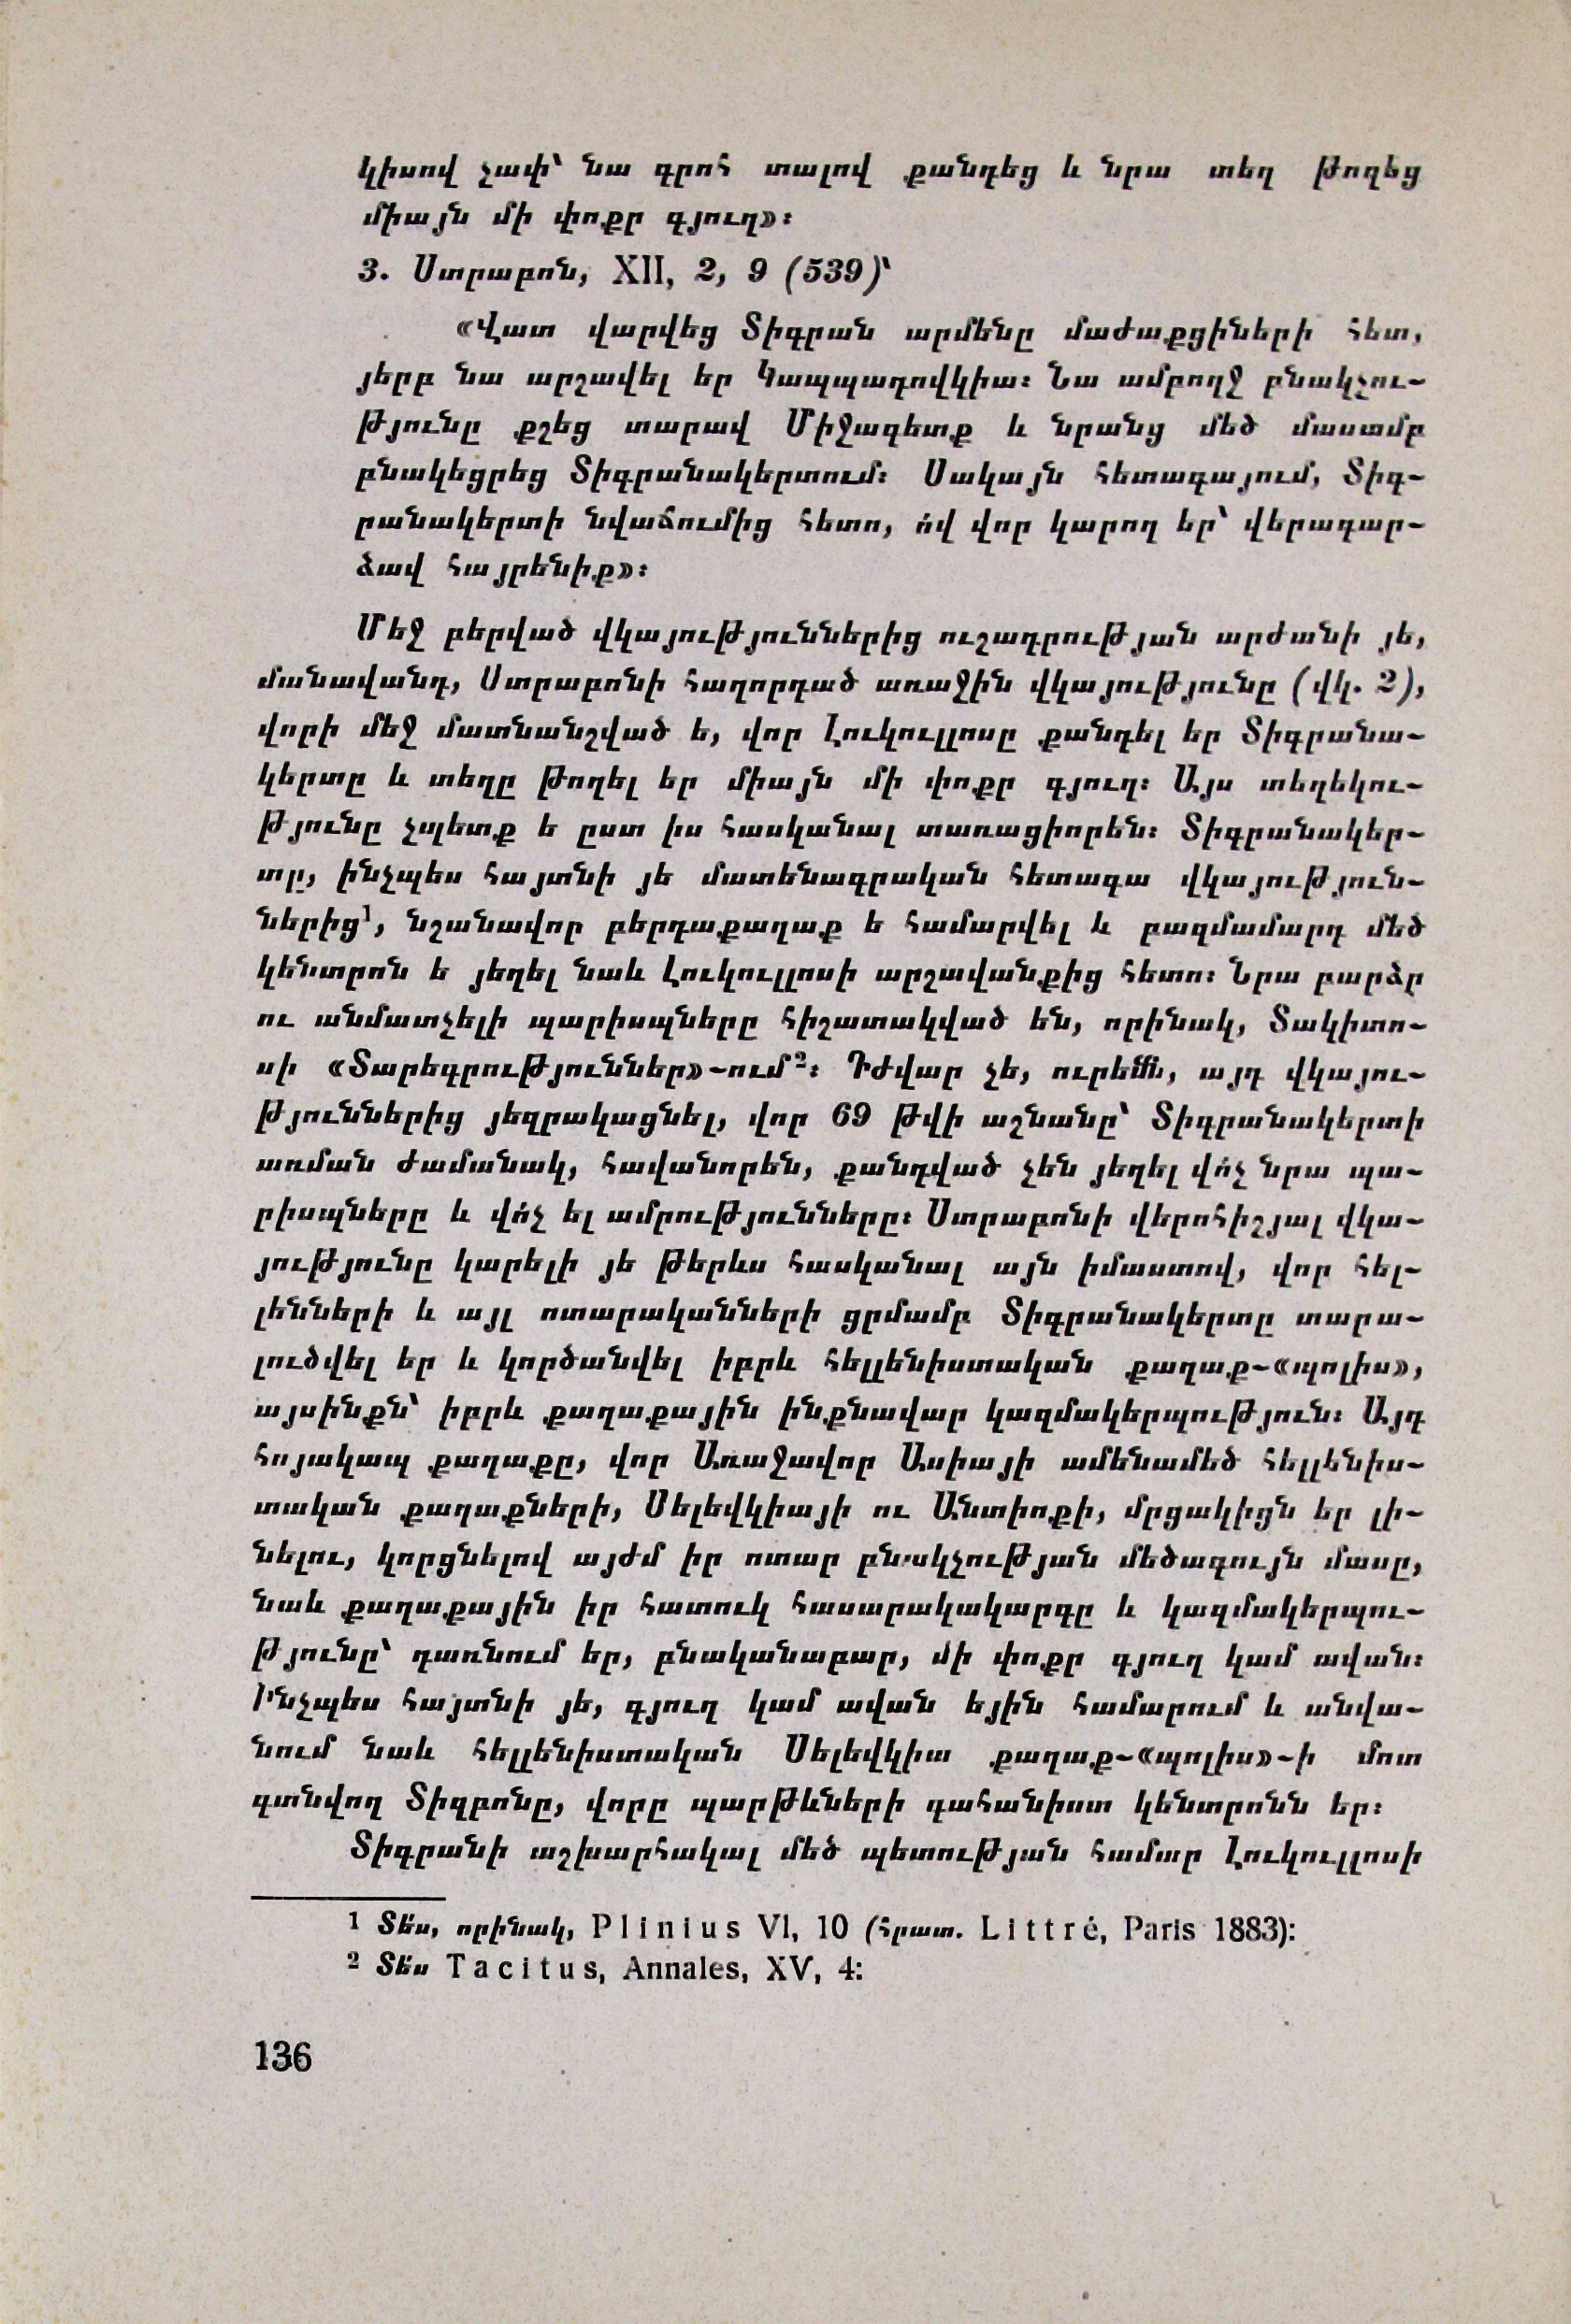 կիսով չափ՝ նա գրոհ տալով քանդեց և նրա տեղ թողեց
միայն մի փոքր գյուղ»։
3. Ստրաբոն, XII, 2, 9 (539)՝
«Վատ վարվեց Տիգրան արմենը մաժաքցիների հետ,
յերբ նա արշավել եր Կապպադովկիա։ Նա ամբողջ բնակչու-
թյունը քշեց տարավ Միջագետք և նրանց մեծ մասամբ
բնակեցրեց Տիգրանակերտում։ Սակայն հետագայում, Տիգ-
րանակերտի նվաճումից հետո, ո՛վ վոր կարող եր՝ վերադար-
ձավ հայրենիք»։
Մեջ բերված վկայություններից ուշադրության արժանի յե,
մանավանդ, Ստրաբոնի հաղորդած առաջին վկայությունը (վկ. 2),
վորի մեջ մատնանշված ե, վոր Լուկուլլոսը քանդել եր Տիգրանա-
կերտը և տեղը թողել եր միայն մի փոքր գյուղ։ Այս տեղեկու-
թյունը չպետք ե ըստ իս հասկանալ տառացիորեն։ Տիգրանակեր-
տը, ինչպես հայտնի յե մատենագրական հետագա վկայություն-
ներից¹, նշանավոր բերդաքաղաք ե համարվել և բազմամարդ մեծ
կենտրոն ե յեղել նաև Լուկուլլոսի արշավանքից հետո։ Նրա բարձր
ու անմատչելի պարիսպները հիշատակված են, որինակ, Տակիտո-
սի «Տարեգրություններ»-ում²։ Դժվար չե, ուրեմն, այդ վկայու-
թյուններից յեզրակացնել, վոր 69 թվի աշնանը՝ Տիգրանակերտի
առման ժամանակ, հավանորեն, քանդված չեն յեղել վո՛չ նրա պա-
րիսպները և վո՛չ ել ամրությունները։ Ստրաբոնի վերոհիշյալ վկա-
յությունը կարելի յե թերևս հասկանալ այն իմաստով, վոր հել-
լենների և այլ ոտարականների ցրմամբ Տիգրանակերտը տարա-
լուծվել եր և կործանվել իբրև հելլենիստական քաղաք-«պոլիս»,
այսինքն՝ իբրև քաղաքային ինքնավար կազմակերպություն։ Այդ
հոյակապ քաղաքը, վոր Առաջավոր Ասիայի ամենամեծ հելլենիս-
տական քաղաքների, Սելևկիայի ու Անտիոքի, մրցակիցն եր լի-
նելու, կորցնելով այժմ իր ոտար բնակչության մեծագույն մասը,
նաև քաղաքային իր հատուկ հասարակակարգը և կազմակերպու-
թյունը՝ դառնում եր, բնականաբար, մի փոքր գյուղ կամ ավան։
Ինչպես հայտնի յե, գյուղ կամ ավան եյին համարում և անվա-
նում նաև հելլենիստական Սելևկիա քաղաք-«պոլիս»-ի մոտ
գտնվող Տիզբոնը, վորը պարթևների գահանիստ կենտրոնն եր։
Տիգրանի աշխարհակալ մեծ պետության համար Լուկուլլոսի
1 Տե՛ս, որինակ, Plinius VI, 10 (հրատ. Littré, Paris 1883)։
2 Տե՛ս Tacitus, Annales, XV, 4։
136